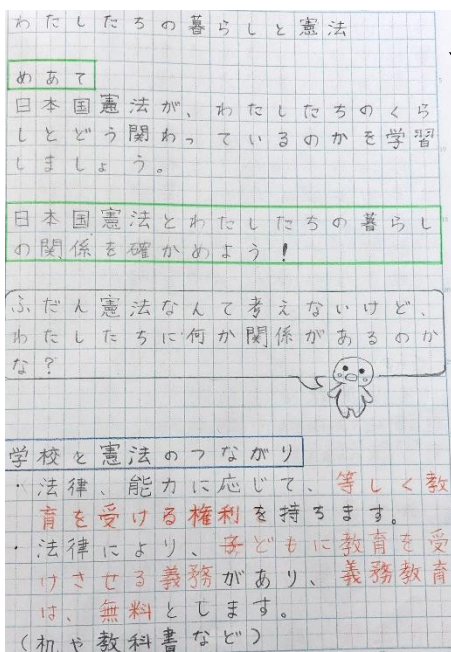 わたしたちの暮らしと憲法
めあて
日本国憲法が、わたしたちのくら
しとどう関わっているのかを学習
しましょう。
日本国憲法とわたしたちの暮らし
の関係を確かめよう！
ふだん憲法なんて考えないけど、
わたしたちに何か関係があるのか
な？
学校と憲法のつながり
・法律、能力に応じて、等しく教
育を受ける権利を持ちます。
・法律により、子どもに教育を受
けさせる義務があり、義務教育
は、無料とします。
（机や教科書など）